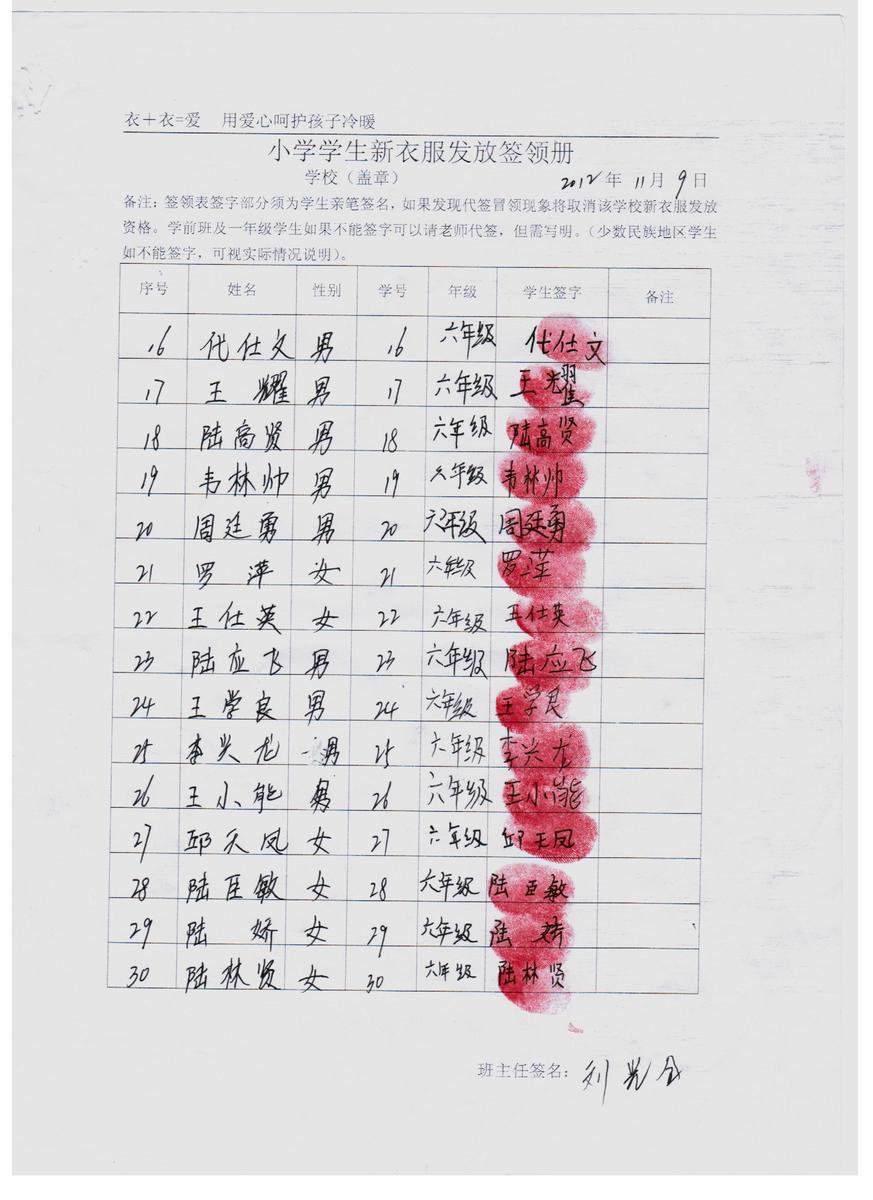 衣＋衣=爱 用爱心呵护孩子冷暖
小学学生新衣服发放签领册
学校（盖章） 2012年11月9日
备注：签领表签字部分须为学生亲笔签名，如果发现代签冒领现象将取消该学校新衣服发放
资格。学前班及一年级学生如果不能签字可以请老师代签，但需写明。（少数民族地区学生
如不能签字，可视实际情况说明）。
序号 姓名 性别 学号 年级 学生签字 备注
16 代仕文 男 16 六年级 代仕文
17 王耀 男 17 六年级 王耀
18 陆高贤 男 18 六年级 陆高贤
19 韦林帅 男 19 六年级 韦林帅
20 周廷勇 男 20 六年级 周廷勇
21 罗萍 女 21 六年级 罗萍
22 王仕英 女 22 六年级 王仕英
23 陆应飞 男 23 六年级 陆应飞
24 王学良 男 24 六年级 王学良
25 李兴龙 男 25 六年级 李兴龙
26 王小能 男 26 六年级 王小能
27 邱天凤 女 27 六年级 邱天凤
28 陆臣敏 女 28 六年级 陆臣敏
29 陆娇 女 29 六年级 陆娇
30 陆林贤 女 30 六年级 陆林贤
班主任签名：刘光全